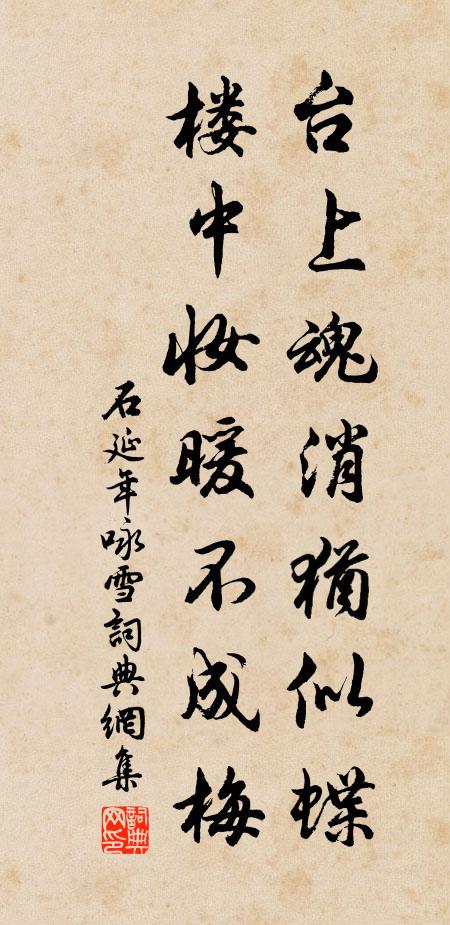 台上魂消犹似蝶
楼中妆暖不成梅
石延年咏雪詞典網集
詞典网印